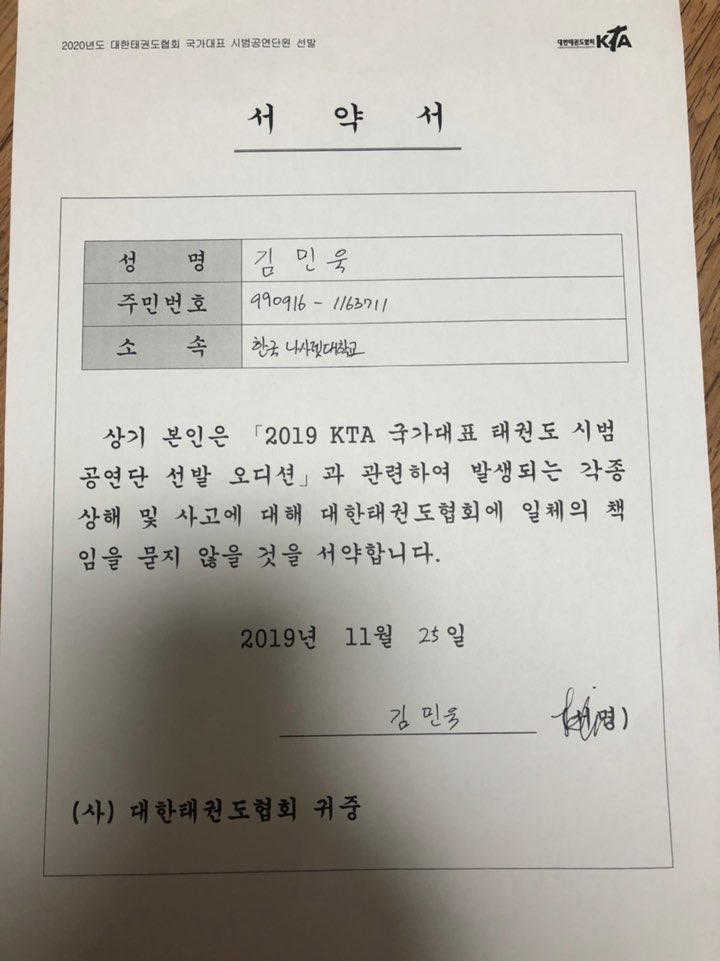 2020년도 대한태권도협회 국가대표 시범공연단원 선발
대한태권도협회 KTA
서 약 서
성 명 김민욱
주민번호 990916 - 1163711
소 속 한국 나사렛대학교
상기 본인은 「2019 KTA 국가대표 태권도 시범
공연단 선발 오디션」과 관련하여 발생되는 각종
상해 및 사고에 대해 대한태권도협회에 일체의 책
임을 묻지 않을 것을 서약합니다.
2019년 11월 25일
김민욱 (서명)
(사) 대한태권도협회 귀중